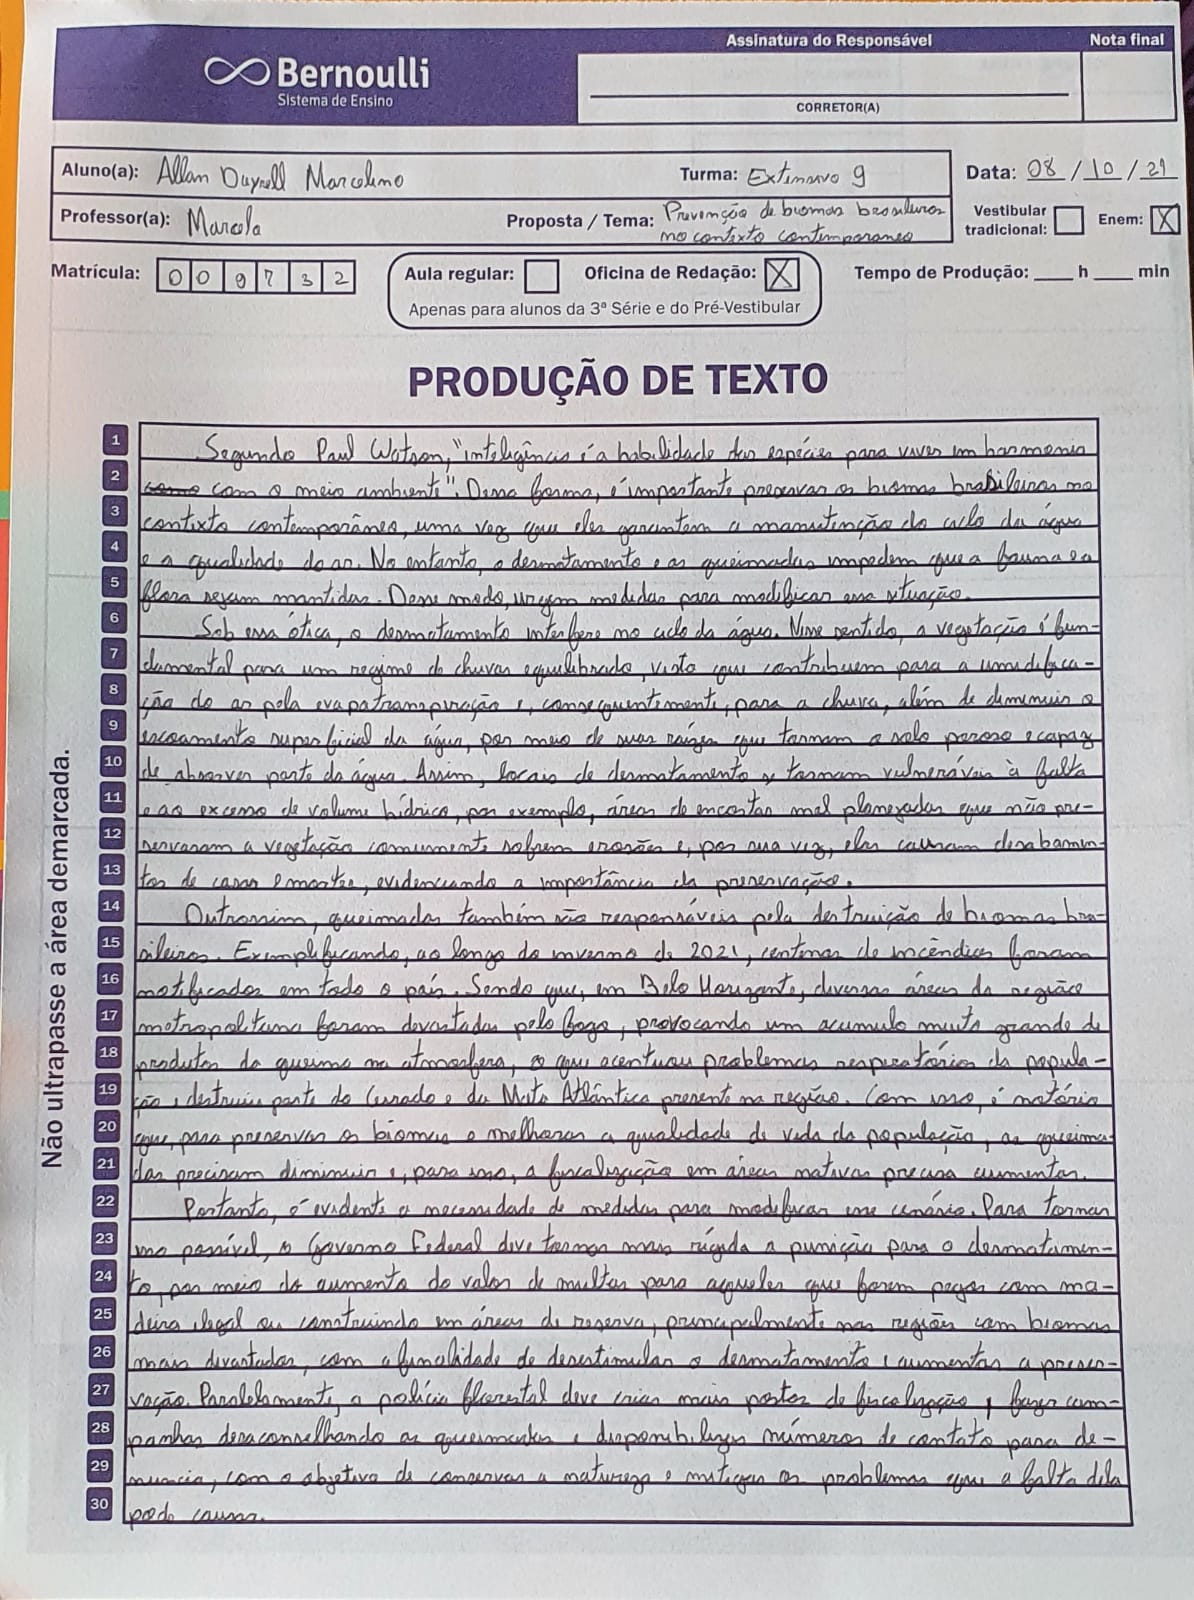 Assinatura do Responsável
Nota final
Bernoulli
Sistema de Ensino
CORRETOR(A)
Aluno(a): Allan Duyrell Marcelino
Turma: Extensivo 9
Data: 08/10/21
Professor(a): Marcela
Proposta / Tema: Prevenção de biomas brasileiros
no contexto contemporaneo
Vestibular tradicional:
Enem: X
Matrícula: 009732
Aula regular:
Oficina de Redação: X
Tempo de Produção: ____ h ____ min
Apenas para alunos da 3ª Série e do Pré-Vestibular
PRODUÇÃO DE TEXTO
Não ultrapasse a área demarcada.
1 Segundo Paul Watson, "inteligência é a habilidade das espécies para viver em harmonia
2 com o meio ambiente". Dessa forma, é importante preservar os biomas brasileiros no
3 contexto contemporâneo, uma vez que eles garantem a manutenção do ciclo da água
4 e a qualidade do ar. No entanto, o desmatamento e as queimadas impedem que a fauna e a
5 flora sejam mantidas. Desse modo, urgem medidas para modificar essa situação.
6 Sob essa ótica, o desmatamento interfere no ciclo da água. Nesse sentido, a vegetação é fun-
7 damental para um regime de chuvas equilibrado, visto que contribuem para a umidifica-
8 ção do ar pela evapatranspiração e, consequentemente, para a chuva, além de diminuir o
9 escoamento superficial da água, por meio de suas raízes que tornam o solo poroso e capaz
10 de absorver parte da água. Assim, locais de desmatamento se tornam vulneráveis à falta
11 e ao excesso de volume hídrico, por exemplo, áreas de encostas mal planejadas que não pre-
12 servaram a vegetação comumente sofrem erosão e, por sua vez, elas causam desabamen-
13 tos de casas e mortes, evidenciando a importância da preservação.
14 Outrossim, queimadas também são responsáveis pela destruição de biomas bra-
15 sileiros. Exemplificando, ao longo do inverno de 2021, centenas de incêndios foram
16 notificados em todo o país. Sendo que, em Belo Horizonte, diversas áreas da região
17 metropolitana foram devastadas pelo fogo, provocando um acumulo muito grande de
18 produtos da queima na atmosfera, o que acentuou problemas respiratórios da popula-
19 ção e destruiu parte do Cerrado e da Mata Atlântica presente na região. Com isso, é notório
20 que, para preservar os biomas e melhorar a qualidade de vida da população, as queima-
21 das precisam diminuir e, para isso, a fiscalização em áreas nativas precisa aumentar.
22 Portanto, é evidente a necessidade de medidas para modificar esse cenário. Para tornar
23 isso possível, o Governo Federal deve tornar mais rígida a punição para o desmatamen-
24 to, por meio do aumento do valor de multas para aqueles que forem pegos com ma-
25 deira ilegal ou construindo em áreas de reserva, principalmente nas região com biomas
26 mais devastados, com a finalidade de desestimular o desmatamento e aumentar a preser-
27 vação. Paralelamente, a polícia florestal deve criar mais postos de fiscalização, fazer cam-
28 panhas desaconselhando as queimadas e disponibilizar números de contato para de-
29 nuncia, com o objetivo de conservar a natureza e mitigar os problemas que a falta dela
30 pode causar.